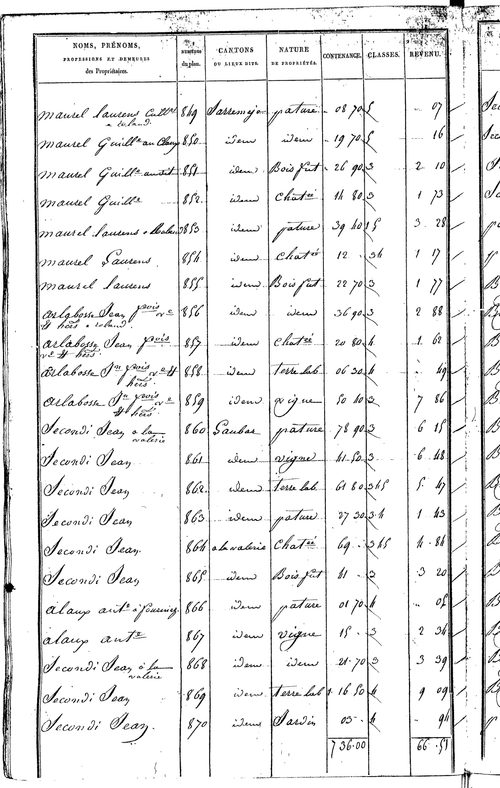 NOMS, PRÉNOMS, PROFESSIONS ET DEMEURES des Propriétaires. NUMÉROS du plan. CANTONS OU LIEUX DITS. NATURE DE PROPRIÉTÉS. CONTENANCE. CLASSES. REVENU.
maurel laurens 849 pature 08 70 5 07
maurel Guill.e 850 idem idem 19 70 5 16
maurel Guill.e 851 idem Bois fut 26 90 3 2 10
maurel Guill.e 852 idem Chat.ée 14 80 3 1 73
maurel laurens 853 idem pature 39 40 5 3 28
maurel Laurens 854 idem chat.ée 12 34 1 17
maurel laurens 855 idem Bois fut 22 70 3 1 77
arlabosse Jean 856 idem idem 36 90 3 2 88
arlabosse Jean 857 idem chat.ée 20 80 4 1 62
arlabosse 858 idem terre lab 06 30 4 49
arlabosse 859 idem vigne 50 40 3 7 86
Secondi Jean à la valerie 860 pature 78 90 3 6 15
Secondi Jean 861 idem vigne 41 50 3 6 48
Secondi Jean 862 idem Terre lab. 61 80 345 5 47
Secondi Jean 863 idem pature 27 30 34 1 43
Secondi Jean 864 a la valerie Chat.ée 69 345 4 84
Secondi Jean 865 idem Bois fut 41 3 3 20
alaux ant.e 866 idem pature 01 70 4 05
alaux ant.e 867 idem vigne 15 3 2 34
Secondi Jean à la valerie 868 idem idem 21 70 3 3 39
Secondi Jean 869 idem terre lab 1 16 50 4 9 09
Secondi Jean 870 idem Jardin 03 4 94
736.00 66.51